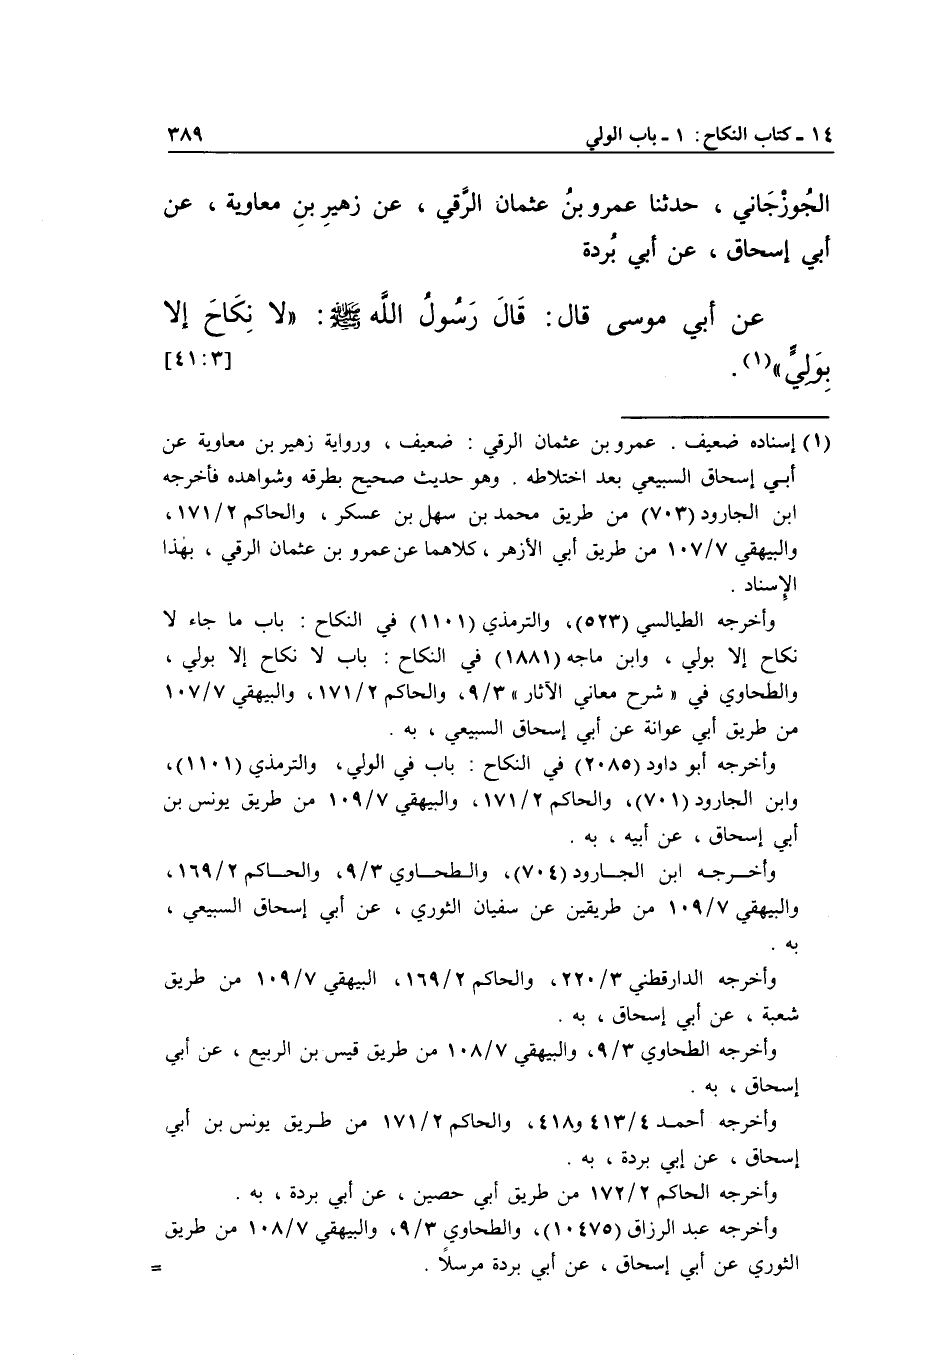 ١٤ ـ كتاب النكاح: ١ ـ باب الولي ٣٨٩
الجُوزْجَاني ، حدثنا عمرو بنُ عثمان الرَّقي ، عن زهيرِ بنِ معاوية ، عن
أبي إسحاق ، عن أبي بُردة
عن أبي موسى قال: قَالَ رَسُولُ اللَّه ﷺ: «لا نِكَاحَ إلا
بِوَلِيٍّ»(١). [٤١:٣]
(١) إسناده ضعيف . عمرو بن عثمان الرقي : ضعيف ، ورواية زهير بن معاوية عن
أبي إسحاق السبيعي بعد اختلاطه . وهو حديث صحيح بطرقه وشواهده فأخرجه
ابن الجارود (٧٠٣) من طريق محمد بن سهل بن عسكر ، والحاكم ١٧١/٢ ،
والبيهقي ١٠٧/٧ من طريق أبي الأزهر ، كلاهما عن عمرو بن عثمان الرقي ، بهٰذا
الإِسناد .
وأخرجه الطيالسي (٥٢٣)، والترمذي (١١٠١) في النكاح : باب ما جاء لا
نكاح إلا بولي ، وابن ماجه (١٨٨١) في النكاح : باب لا نكاح إلا بولي ،
والطحاوي في « شرح معاني الآثار » ٩/٣، والحاكم ١٧١/٢، والبيهقي ١٠٧/٧
من طريق أبي عوانة عن أبي إسحاق السبيعي ، به .
وأخرجه أبو داود (٢٠٨٥) في النكاح : باب في الولي، والترمذي (١١٠١)،
وابن الجارود (٧٠١)، والحاكم ١٧١/٢، والبيهقي ١٠٩/٧ من طريق يونس بن
أبي إسحاق ، عن أبيه ، به .
وأخـرجـه ابن الجـارود (٧٠٤)، والـطحـاوي ٩/٣، والحـاكم ١٦٩/٢،
والبيهقي ١٠٩/٧ من طريقين عن سفيان الثوري ، عن أبي إسحاق السبيعي ،
به .
وأخرجه الدارقطني ٢٢٠/٣، والحاكم ١٦٩/٢، البيهقي ١٠٩/٧ من طريق
شعبة ، عن أبي إسحاق ، به .
وأخرجه الطحاوي ٩/٣، والبيهقي ١٠٨/٧ من طريق قيس بن الربيع ، عن أبي
إسحاق ، به .
وأخرجه أحمـد ٤١٣/٤ و٤١٨، والحاكم ١٧١/٢ من طـريق يونس بن أبي
إسحاق ، عن إبي بردة ، به .
وأخرجه الحاكم ١٧٢/٢ من طريق أبي حصين ، عن أبي بردة ، به .
وأخرجه عبد الرزاق (١٠٤٧٥)، والطحاوي ٩/٣، والبيهقي ١٠٨/٧ من طريق
الثوري عن أبي إسحاق ، عن أبي بردة مرسلاً . =